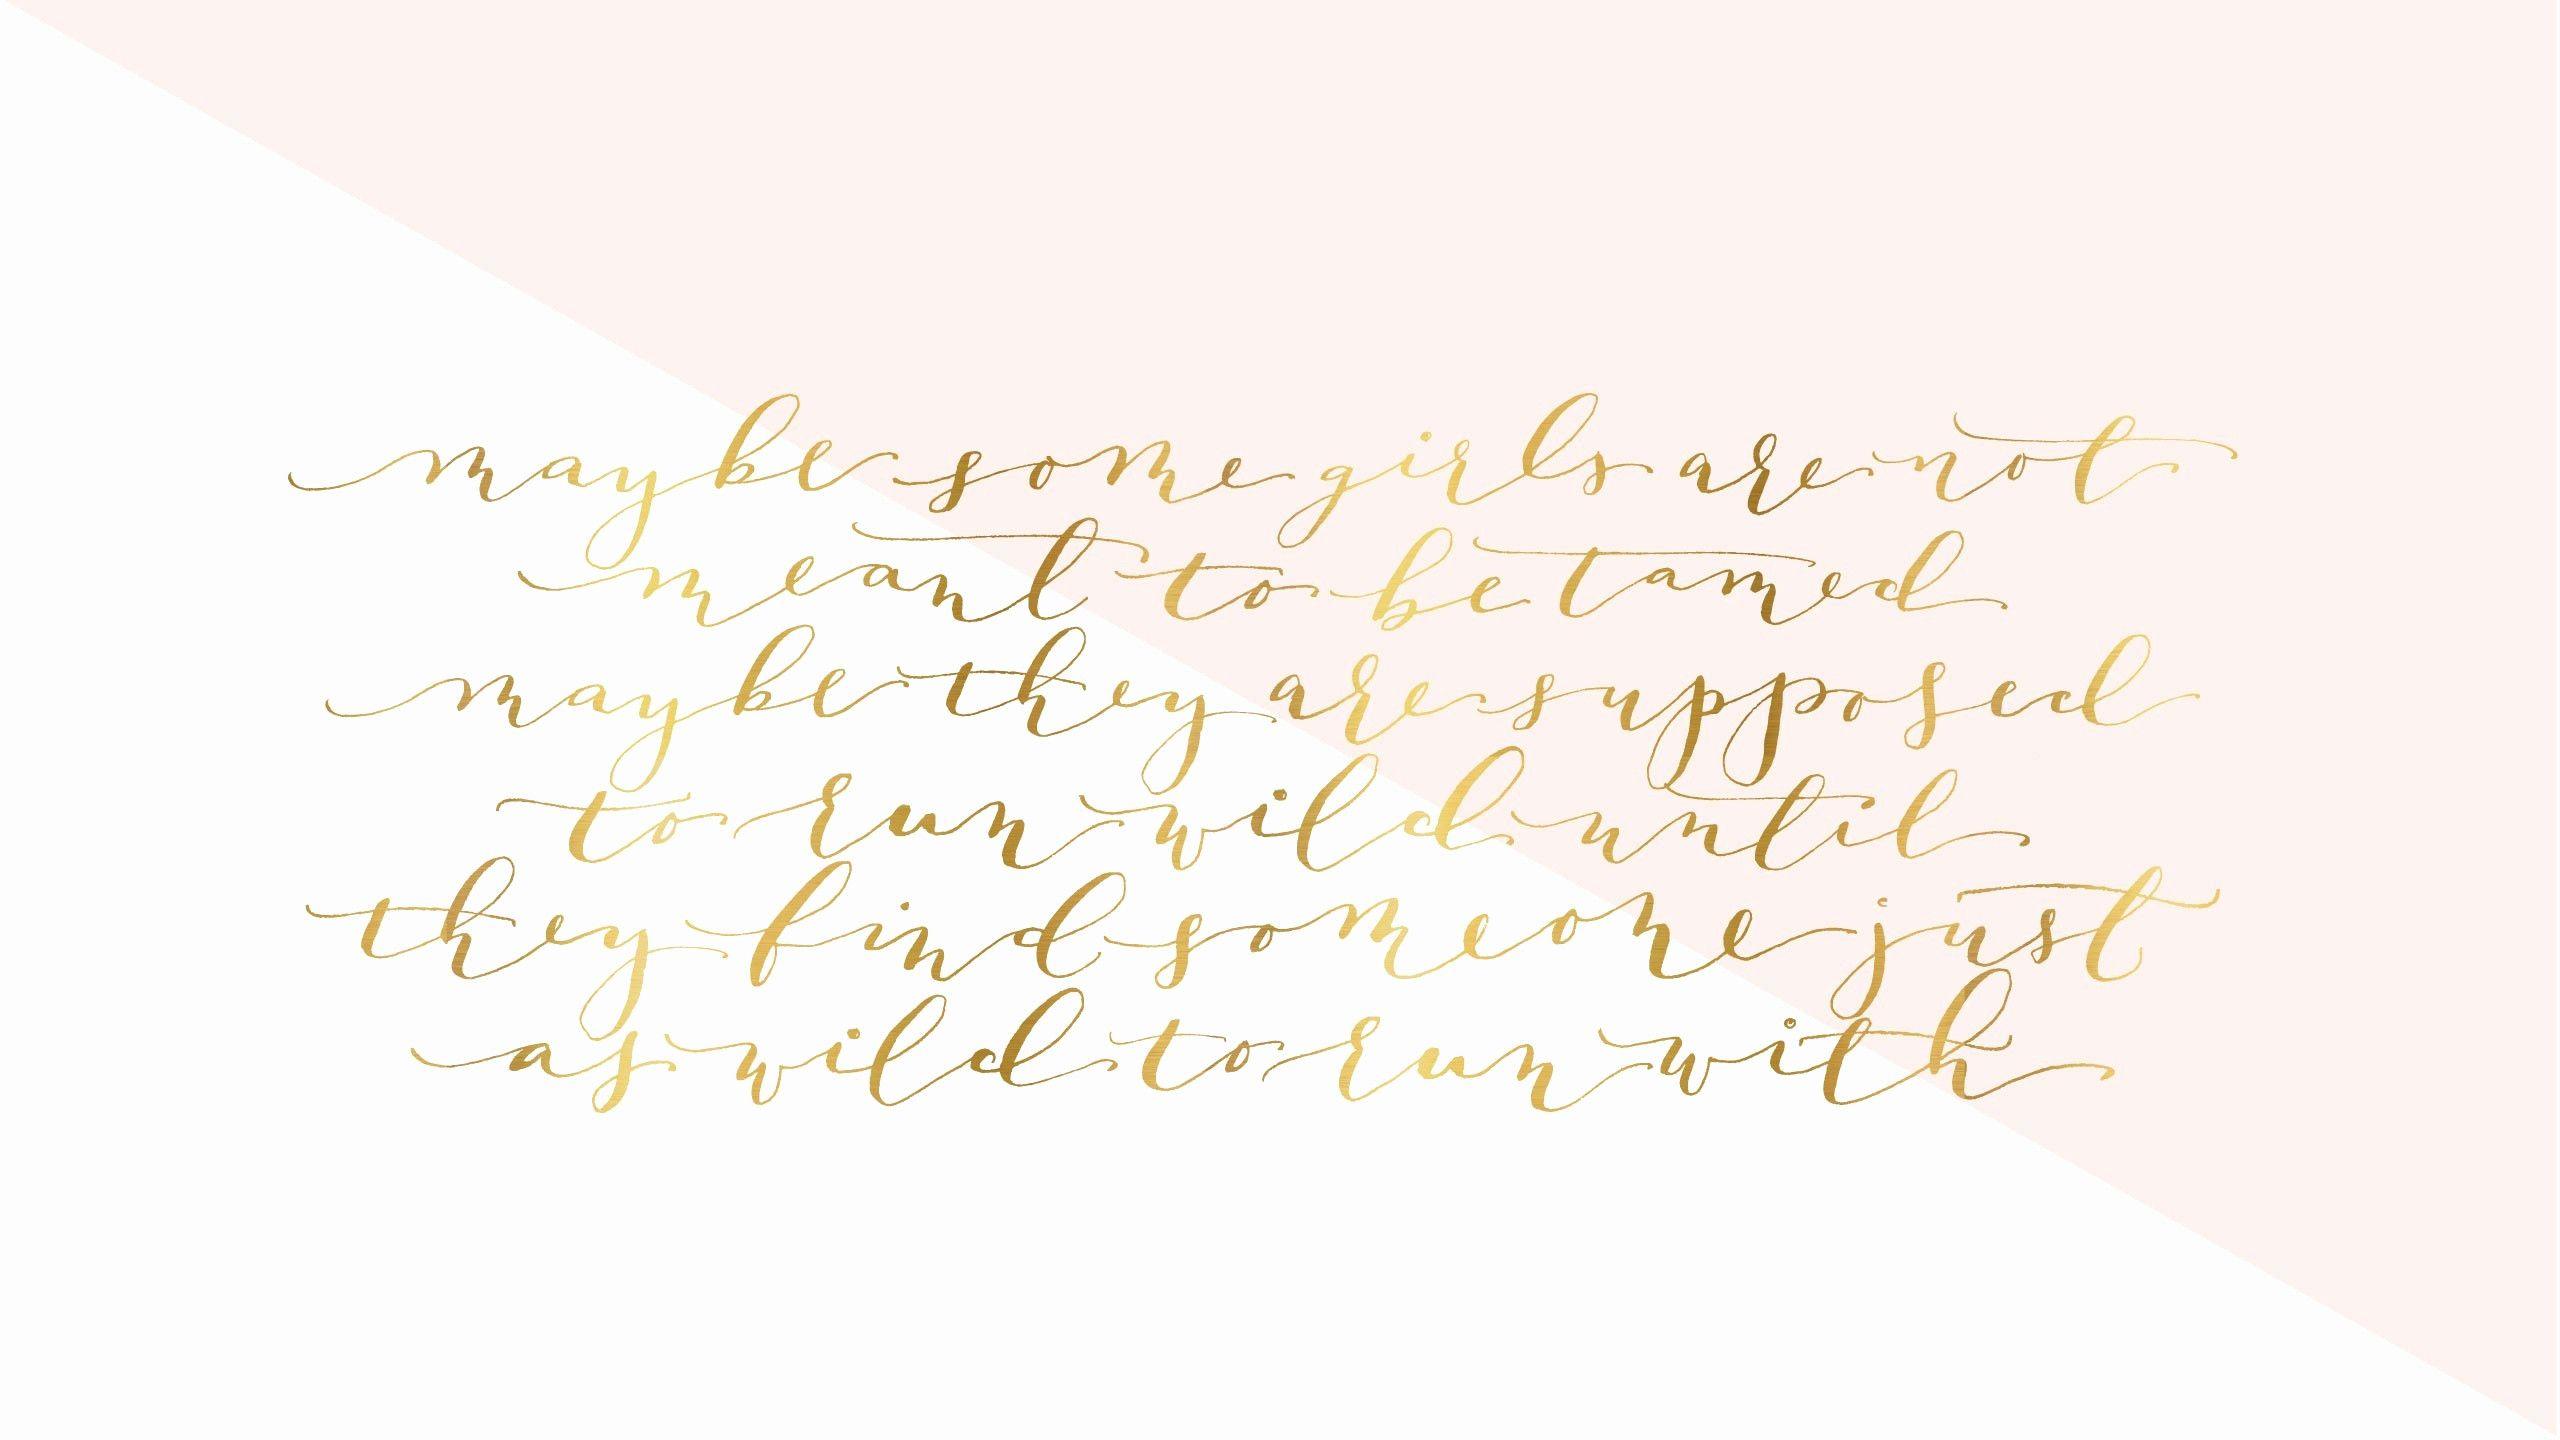 maybe some girls are not
meant to be tamed
maybe they are supposed
to run wild until
they find someone just
as wild to run with